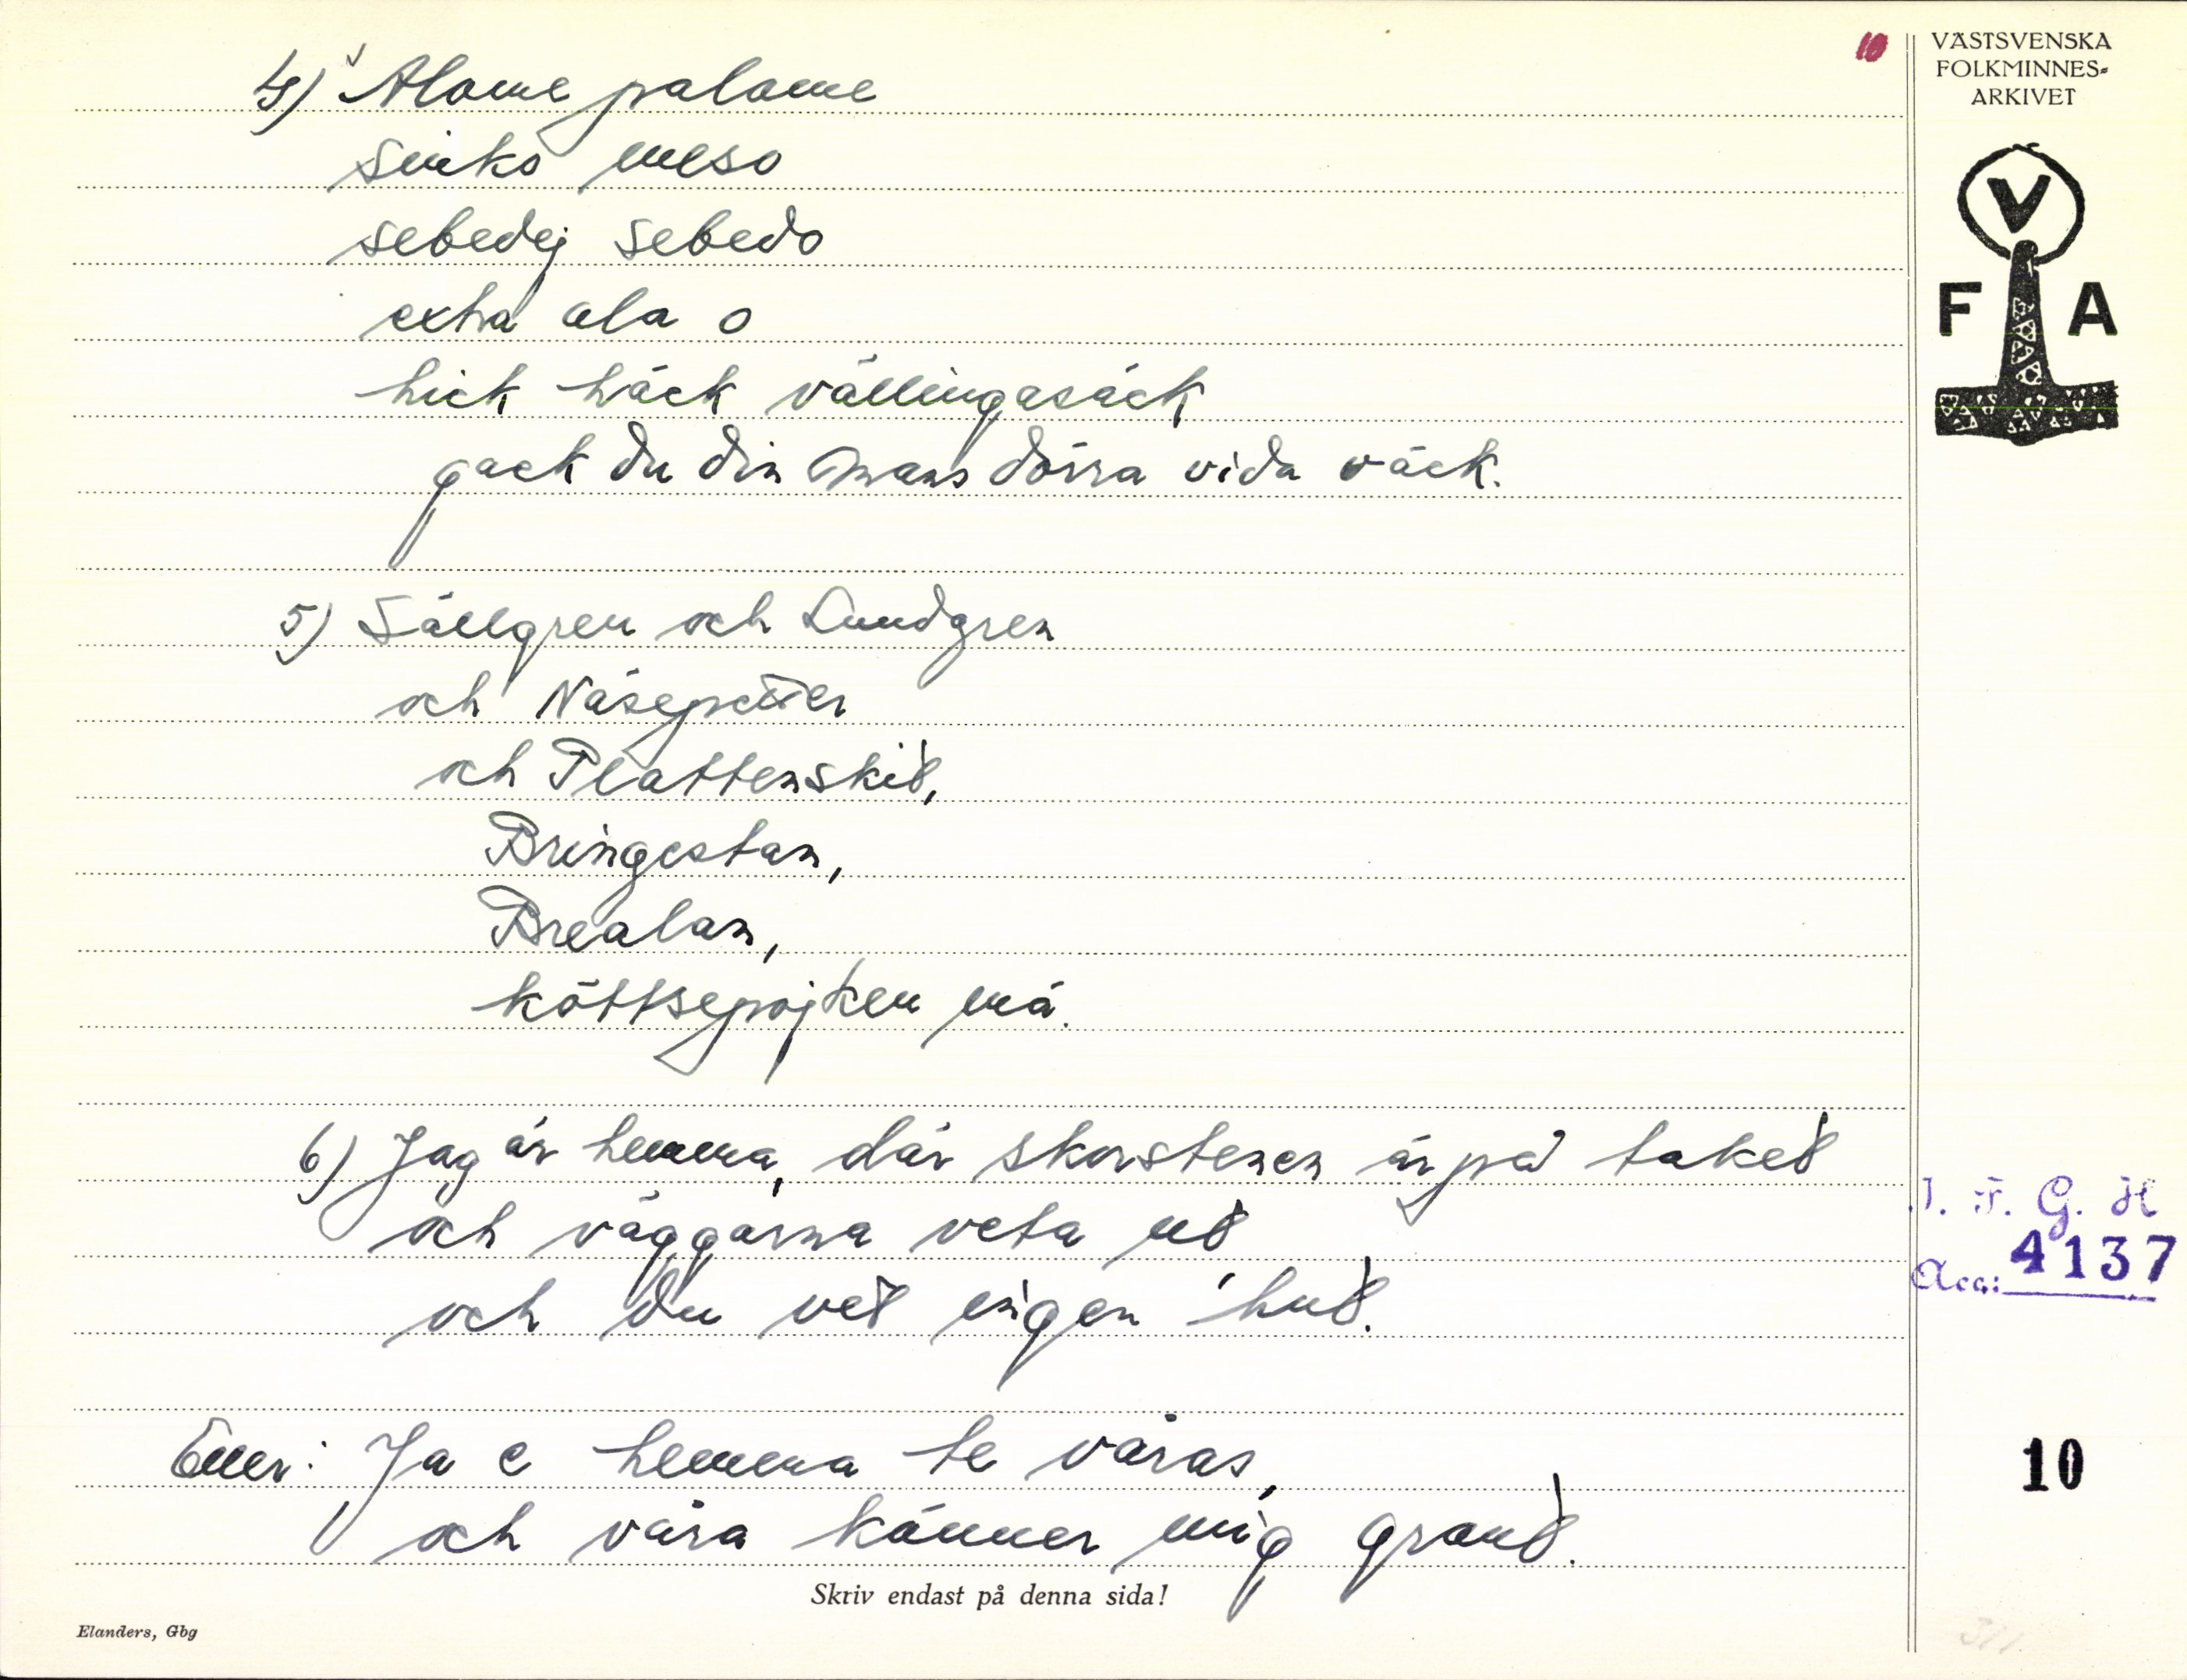 10
VÄSTSVENSKA
FOLKMINNES-
ARKIVET
V
F A
4) Alome palome
sinko meso
sebedej sebedo
extra ala o
hick häck vällingasäck
gack du din mans dörra vida väck.
5) Sällgren och Lundgren
och Näsepetter
och Plattenskit,
Bringestan,
Brealan,
köttsepojken má.
6) Jag är hemma, där skorstenen är på taket
och väggarna veta ut
och du vet ingen hut.
Eller: Ja e hemma te våras,
och våra känner mig grant.
I. F. G. H
Acc: 4137
10
Skriv endast på denna sida!
Elanders, Gbg